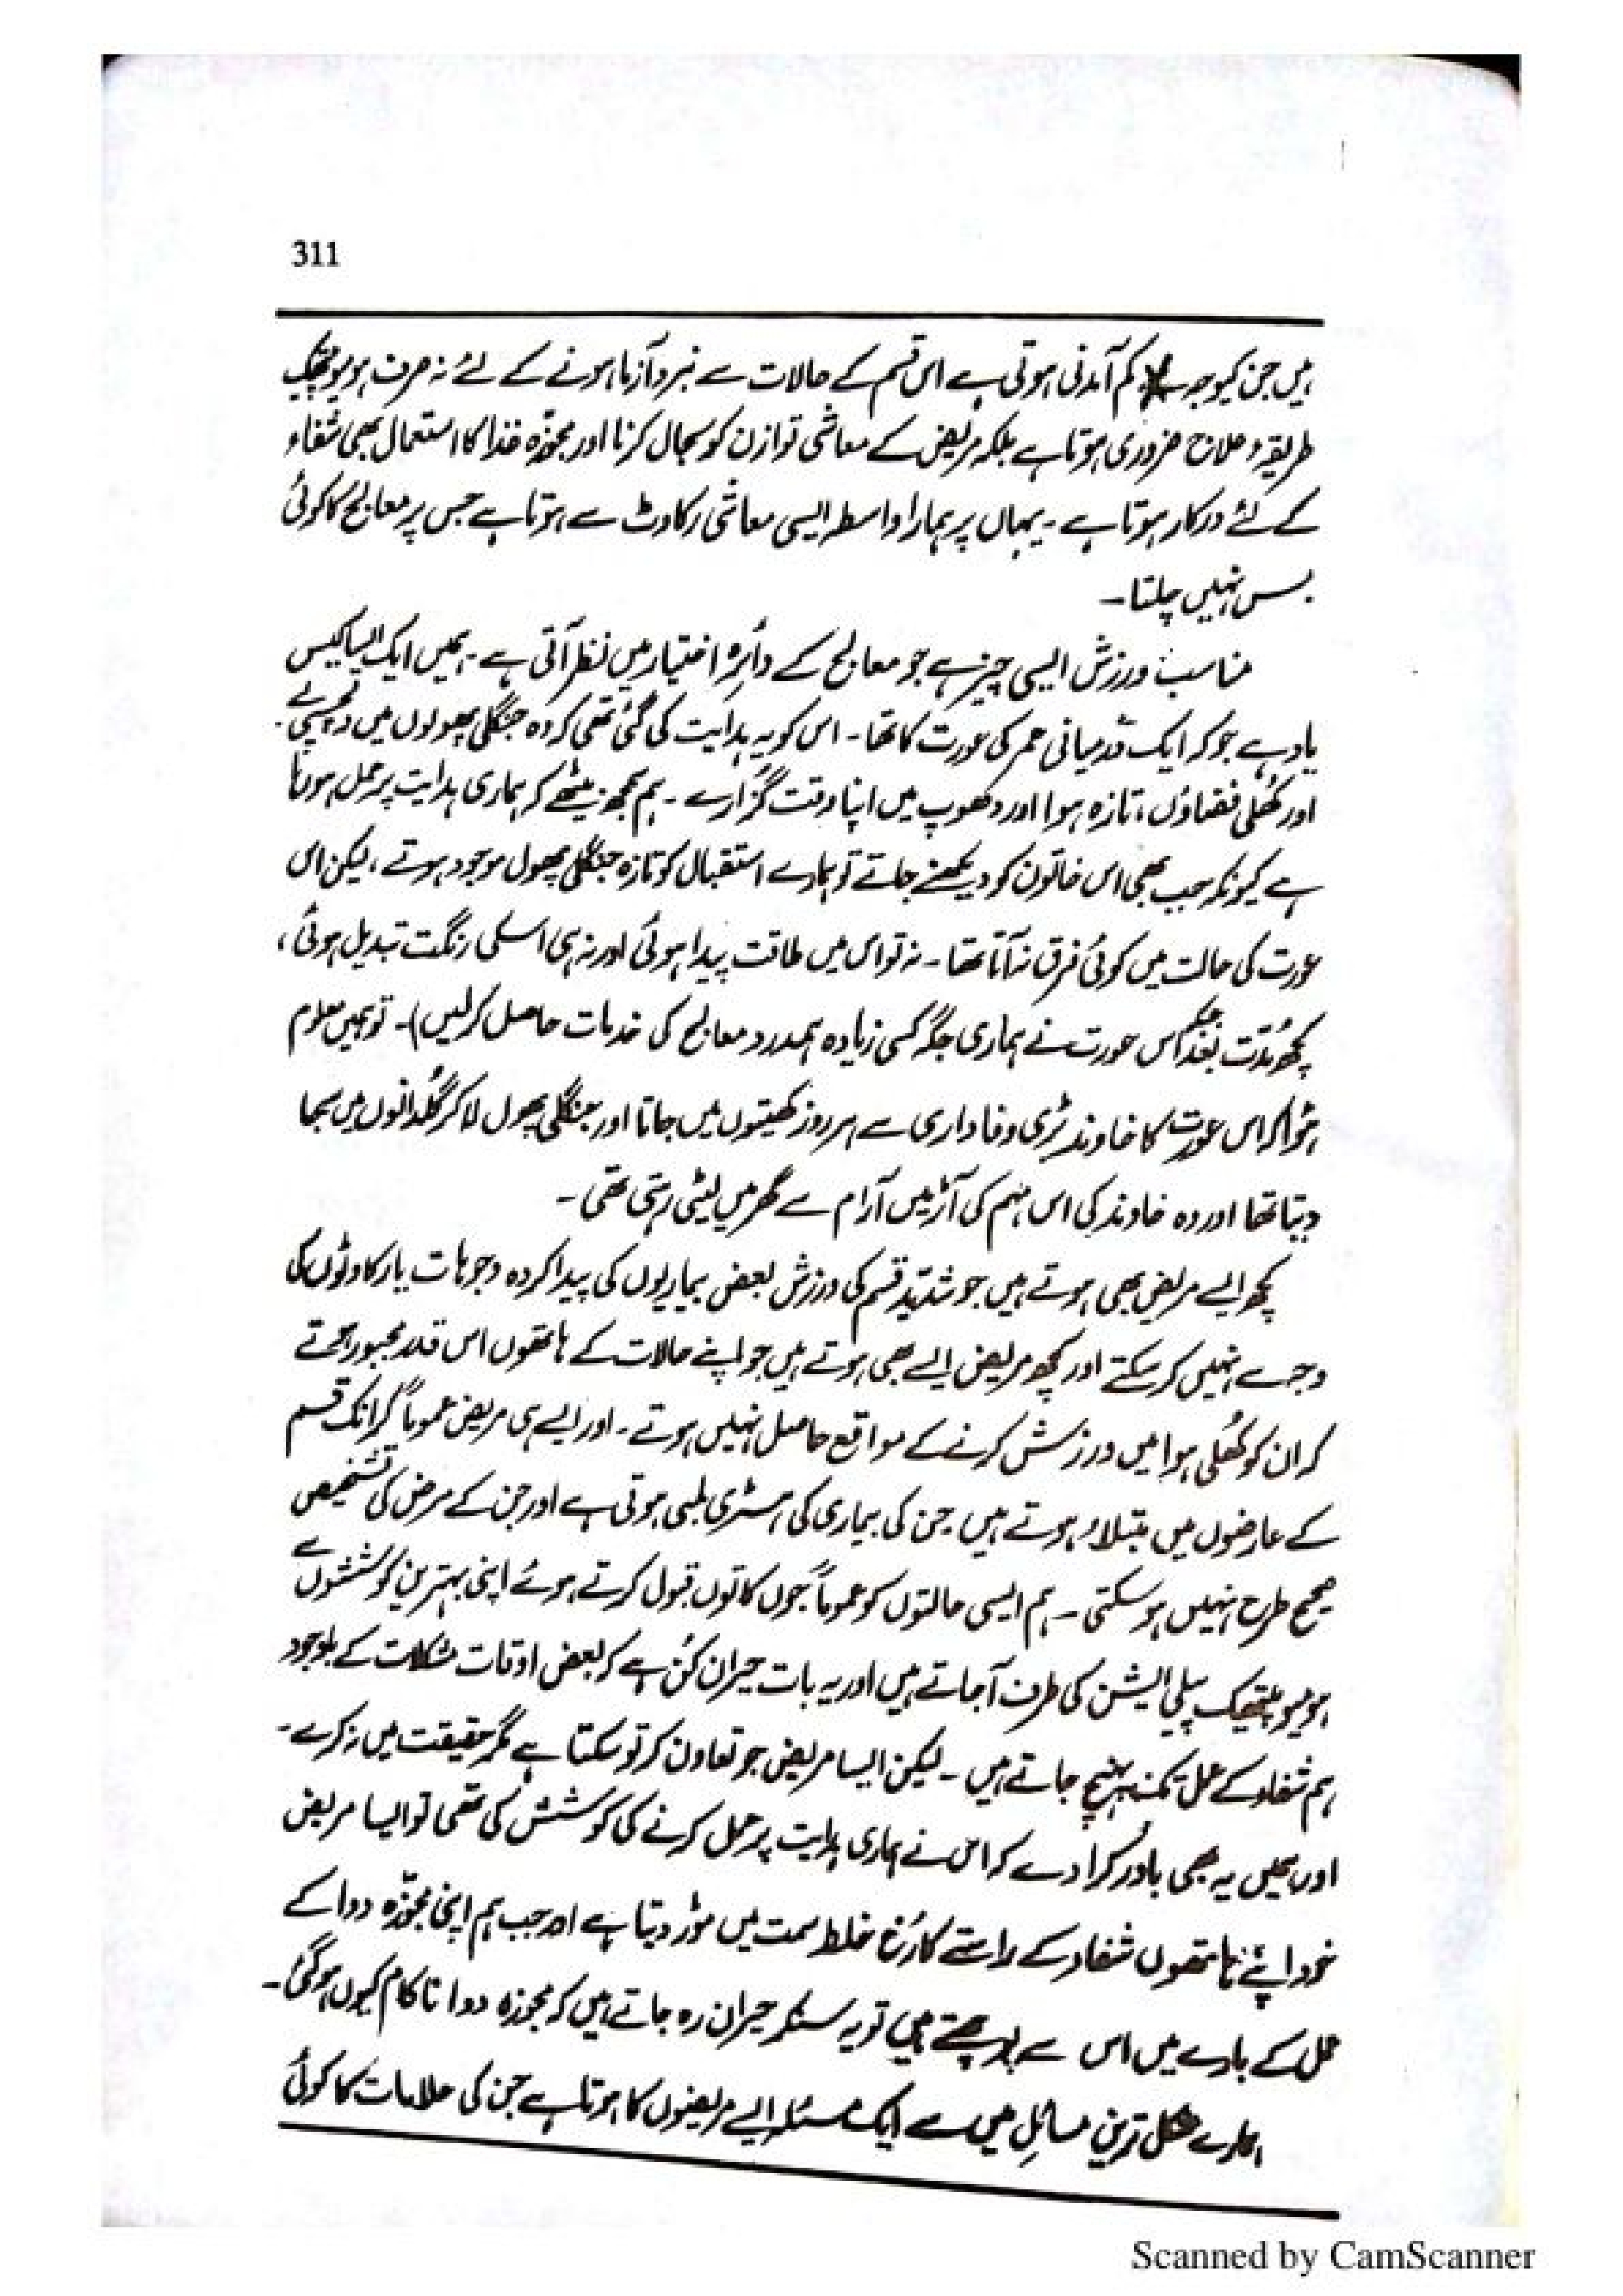 311
ہیں جن کیوجہ سے کم آمدنی ہوتی ہے اس قسم کے حالات سے نبرد آزما ہونے کے لئے نہ صرف ہومیوپیتھک
طریقۂ علاج ضروری ہوتا ہے بلکہ مریض کے معاشی توازن کو بحال کرنا اور مجوّزہ غذا کا استعمال بھی شفاء
کے لئے درکار ہوتا ہے ۔ یہاں پر ہمارا واسطہ ایسی معاشی رکاوٹ سے ہوتا ہے جس پر معالج کا کوئی
بس نہیں چلتا ۔
مناسب ورزش ایسی چیز ہے جو معالج کے دائرہ اختیار میں نظر آتی ہے ۔ ہمیں ایک ایسا کیس
یاد ہے جو کہ ایک درمیانی عمر کی عورت کا تھا ۔ اس کو یہ ہدایت کی گئی تھی کہ وہ جنگلی پھولوں میں دلچسپی لے ۔
اور کُھلی فضاؤں ، تازہ ہوا اور دھوپ میں اپنا وقت گزارے ۔ ہم سمجھ بیٹھے کہ ہماری ہدایت پر عمل ہو رہا
ہے کیونکہ جب بھی اس خاتون کو دیکھنے جاتے تو ہمارے استقبال کو تازہ جنگلی پھول موجود ہوتے ، لیکن اس
عورت کی حالت میں کوئی فرق نہ آتا تھا ۔ نہ تو اس میں طاقت پیدا ہوئی اور نہ ہی اسکی رنگت تبدیل ہوئی ،
کچھ مُدّت بعد جبکہ اس عورت نے ہماری جگہ کسی زیادہ ہمدرد معالج کی خدمات حاصل کر لیں) ۔ تو ہمیں معلوم
ہوُا کہ اس عورت کا خاوند بڑی وفاداری سے ہر روز کھیتوں میں جاتا اور جنگلی پھول لا کر گُلدانوں میں سجا
دیتا تھا اور وہ خاوند کی اس مہم کی آڑ میں آرام سے گھر میں لیٹی رہتی تھی ۔
کچھ ایسے مریض بھی ہوتے ہیں جو شدید قسم کی ورزش بعض بیماریوں کی پیدا کردہ وجوہات یا رکاوٹوں کی
وجہ سے نہیں کر سکتے اور کچھ مریض ایسے بھی ہوتے ہیں جو اپنے حالات کے ہاتھوں اس قدر مجبور ہوتے
کہ ان کو کُھلی ہوا میں ورزش کرنے کے مواقع حاصل نہیں ہوتے ۔ اور ایسے ہی مریض عموماً کرانک قسم
کے عارضوں میں مبتلاء ہوتے ہیں جن کی بیماری کی ہسٹری لمبی ہوتی ہے اور جن کے مرض کی تشخیص
صحیح طرح نہیں ہو سکتی ۔ ہم ایسی حالتوں کو عموماً جوں کا توں قبول کرتے ہوئے اپنی بہترین کوششوں سے
ہومیوپیتھک پیلی ایشن کی طرف آ جاتے ہیں اور یہ بات حیران کُن ہے کہ بعض اوقات مشکلات کے باوجود
ہم شفاء کے عمل تک پہنچ جاتے ہیں ۔ لیکن ایسا مریض جو تعاون کر تو سکتا ہے مگر حقیقت میں نہ کرے ۔
اور ہمیں یہ بھی باور کرا دے کہ اس نے ہماری ہدایت پر عمل کرنے کی کوشش کی تھی تو ایسا مریض
خود اپنے ہاتھوں شفاء کے راستے کا رُخ غلط سمت میں موڑ دیتا ہے اور جب ہم اپنی مجوّزہ دوا کے
عمل کے بارے میں اس سے پوچھتے ہیں تو یہ سنکر حیران رہ جاتے ہیں کہ مجوزہ دوا ناکام کیوں ہو گئی ۔
ہمارے مشکل ترین مسائل میں سے ایک مسئلہ ایسے مریضوں کا ہوتا ہے جن کی علامات کا کوئی
Scanned by CamScanner